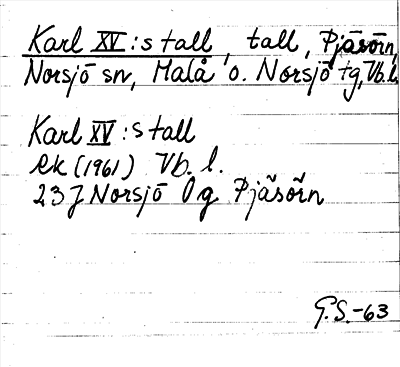 Karl XV:s tall, tall, Pjäsörn,
Norsjö sn, Malå o. Norsjö tg, Vb.l.
Karl XV:s tall
ek (1961) Vb. l.
23 J Norsjö Og Pjäsörn
G.S.-63